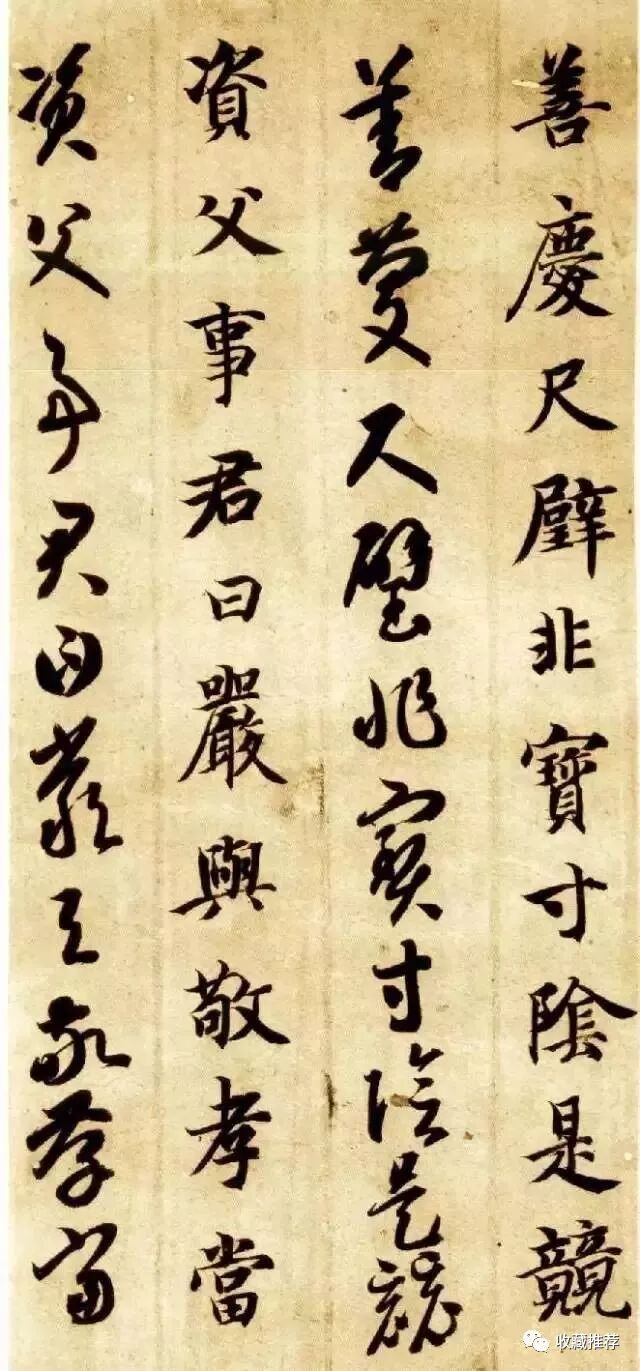 善慶尺璧非寶寸陰是競
善慶尺璧非寶寸陰是競
資父事君曰嚴與敬孝當
資父事君曰嚴与敬孝當
收藏推荐